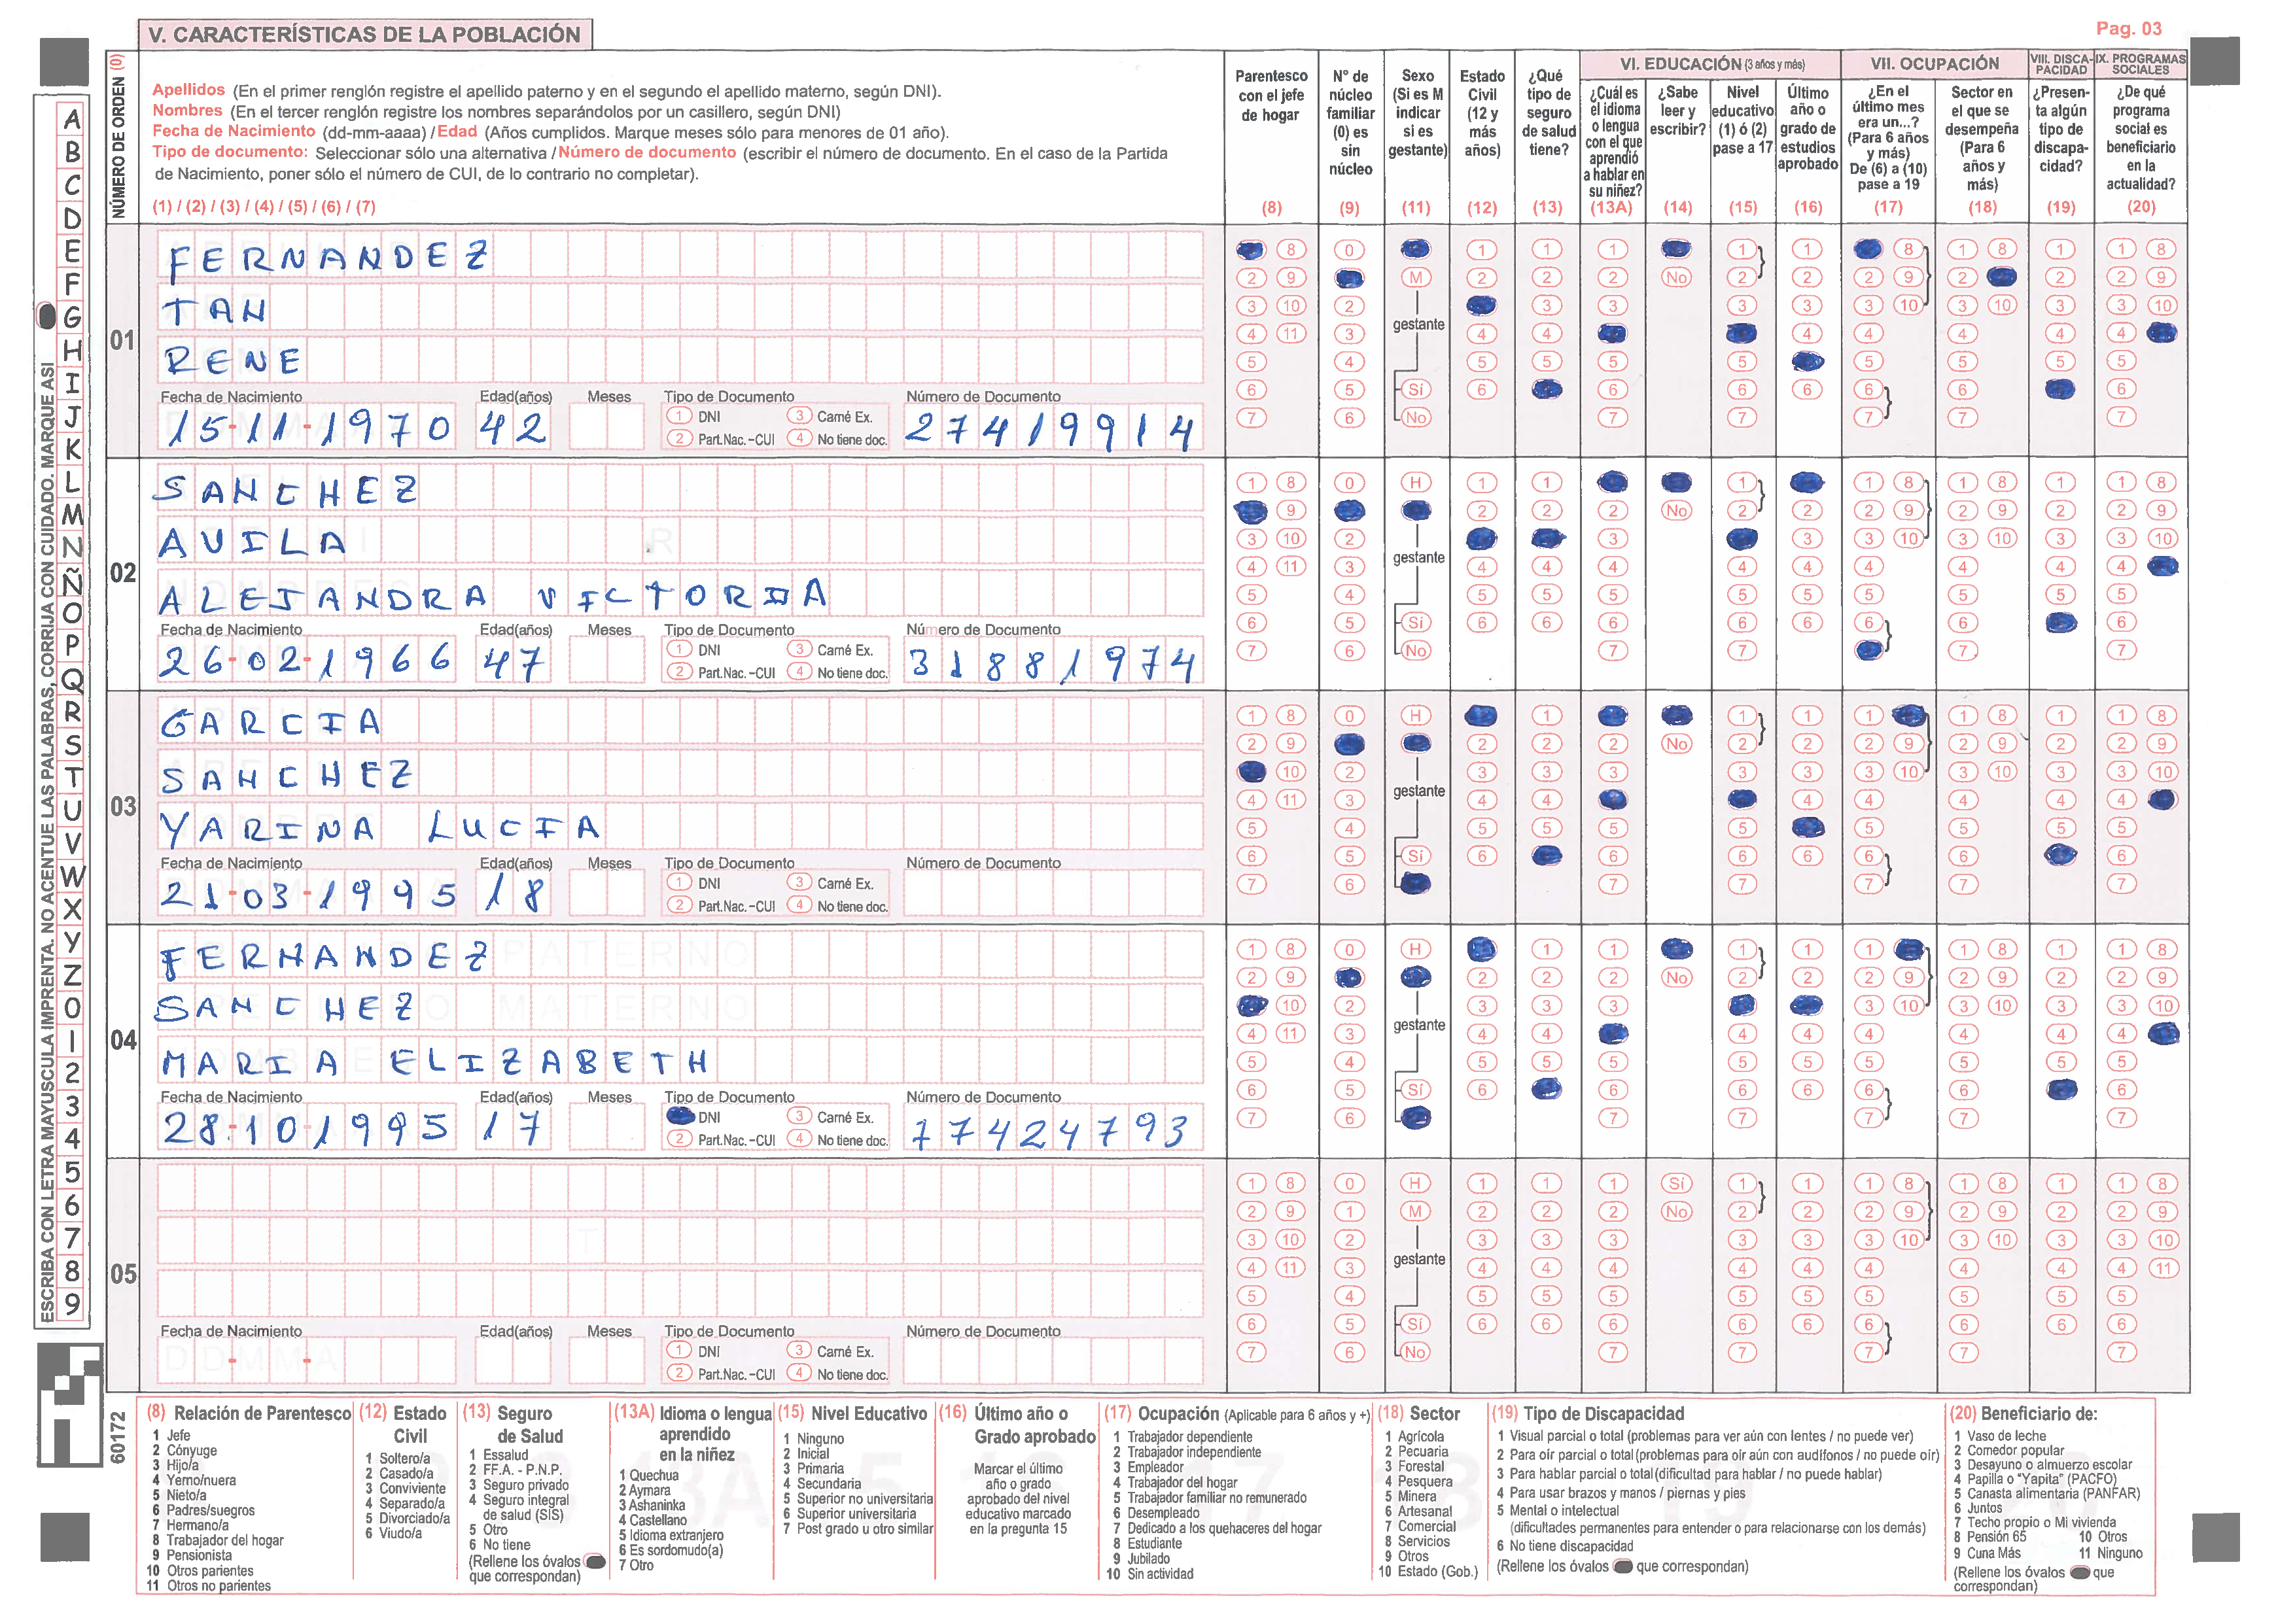 V. CARACTERÍSTICAS DE LA POBLACIÓN
Pag. 03
NÚMERO DE ORDEN (0)
Apellidos (En el primer renglón registre el apellido paterno y en el segundo el apellido materno, según DNI).
Nombres (En el tercer renglón registre los nombres separándolos por un casillero, según DNI)
Fecha de Nacimiento (dd-mm-aaaa) / Edad (Años cumplidos. Marque meses sólo para menores de 01 año).
Tipo de documento: Seleccionar sólo una alternativa / Número de documento (escribir el número de documento. En el caso de la Partida
de Nacimiento, poner sólo el número de CUI, de lo contrario no completar).
(1) / (2) / (3) / (4) / (5) / (6) / (7)
Parentesco con el jefe de hogar (8)
N° de núcleo familiar (0) es sin núcleo (9)
Sexo (Si es M indicar si es gestante) (11)
Estado Civil (12 y más años) (12)
¿Qué tipo de seguro de salud tiene? (13)
VI. EDUCACIÓN (3 años y más)
¿Cuál es el idioma o lengua con el que aprendió a hablar en su niñez? (13A)
¿Sabe leer y escribir? (14)
Nivel educativo (1) ó (2) pase a 17 (15)
Último año o grado de estudios aprobado (16)
VII. OCUPACIÓN
¿En el último mes era un...? (Para 6 años y más) De (6) a (10) pase a 19 (17)
Sector en el que se desempeña (Para 6 años y más) (18)
VIII. DISCAPACIDAD
¿Presenta algún tipo de discapacidad? (19)
IX. PROGRAMAS SOCIALES
¿De qué programa social es beneficiario en la actualidad? (20)
ESCRIBA CON LETRA MAYUSCULA IMPRENTA. NO ACENTUE LAS PALABRAS, CORRIJA CON CUIDADO. MARQUE ASI
A B C D E F G H I J K L M N Ñ O P Q R S T U V W X Y Z 0 1 2 3 4 5 6 7 8 9
01
FERNANDEZ
TAN
RENE
Fecha de Nacimiento Edad(años) Meses Tipo de Documento Número de Documento
1 DNI 3 Carné Ex.
2 Part.Nac.-CUI 4 No tiene doc.
15-11-1970 42 27419914
02
SANCHEZ
AVILA
ALEJANDRA VICTORIA
Fecha de Nacimiento Edad(años) Meses Tipo de Documento Número de Documento
1 DNI 3 Carné Ex.
2 Part.Nac.-CUI 4 No tiene doc.
26-02-1966 47 31881974
03
GARCIA
SANCHEZ
YARINA LUCIA
Fecha de Nacimiento Edad(años) Meses Tipo de Documento Número de Documento
1 DNI 3 Carné Ex.
2 Part.Nac.-CUI 4 No tiene doc.
21-03-1995 18
04
FERNANDEZ
SANCHEZ
MARIA ELIZABETH
Fecha de Nacimiento Edad(años) Meses Tipo de Documento Número de Documento
DNI 3 Carné Ex.
2 Part.Nac.-CUI 4 No tiene doc.
28-10-1995 17 77424793
05
Fecha de Nacimiento Edad(años) Meses Tipo de Documento Número de Documento
1 DNI 3 Carné Ex.
2 Part.Nac.-CUI 4 No tiene doc.
60172
(8) Relación de Parentesco
1 Jefe
2 Cónyuge
3 Hijo/a
4 Yerno/nuera
5 Nieto/a
6 Padres/suegros
7 Hermano/a
8 Trabajador del hogar
9 Pensionista
10 Otros parientes
11 Otros no parientes
(12) Estado Civil
1 Soltero/a
2 Casado/a
3 Conviviente
4 Separado/a
5 Divorciado/a
6 Viudo/a
(13) Seguro de Salud
1 Essalud
2 FF.A. - P.N.P.
3 Seguro privado
4 Seguro integral de salud (SIS)
5 Otro
6 No tiene
(Rellene los óvalos que correspondan)
(13A) Idioma o lengua aprendido en la niñez
1 Quechua
2 Aymara
3 Ashaninka
4 Castellano
5 Idioma extranjero
6 Es sordomudo(a)
7 Otro
(15) Nivel Educativo
1 Ninguno
2 Inicial
3 Primaria
4 Secundaria
5 Superior no universitaria
6 Superior universitaria
7 Post grado u otro similar
(16) Último año o Grado aprobado
Marcar el último año o grado aprobado del nivel educativo marcado en la pregunta 15
(17) Ocupación (Aplicable para 6 años y +)
1 Trabajador dependiente
2 Trabajador independiente
3 Empleador
4 Trabajador del hogar
5 Trabajador familiar no remunerado
6 Desempleado
7 Dedicado a los quehaceres del hogar
8 Estudiante
9 Jubilado
10 Sin actividad
(18) Sector
1 Agrícola
2 Pecuaria
3 Forestal
4 Pesquera
5 Minera
6 Artesanal
7 Comercial
8 Servicios
9 Otros
10 Estado (Gob.)
(19) Tipo de Discapacidad
1 Visual parcial o total (problemas para ver aún con lentes / no puede ver)
2 Para oír parcial o total (problemas para oir aún con audífonos / no puede oír)
3 Para hablar parcial o total (dificultad para hablar / no puede hablar)
4 Para usar brazos y manos / piernas y pies
5 Mental o intelectual
(dificultades permanentes para entender o para relacionarse con los demás)
6 No tiene discapacidad
(Rellene los óvalos que correspondan)
(20) Beneficiario de:
1 Vaso de leche
2 Comedor popular
3 Desayuno o almuerzo escolar
4 Papilla o "Yapita" (PACFO)
5 Canasta alimentaria (PANFAR)
6 Juntos
7 Techo propio o Mi vivienda
8 Pensión 65 10 Otros
9 Cuna Más 11 Ninguno
(Rellene los óvalos que correspondan)